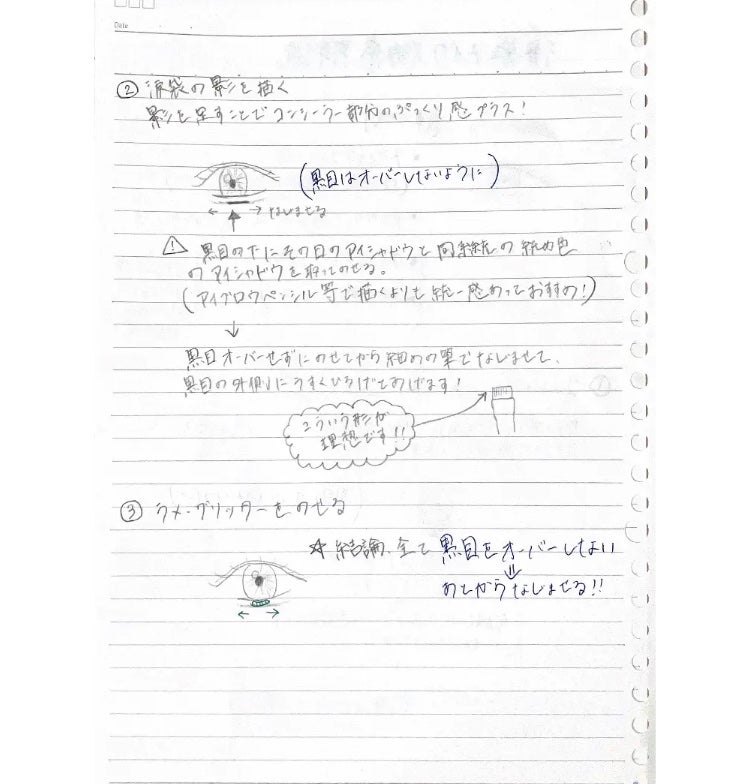 Date
② 涙袋の影を描く
影を足すことでコンシーラー部分のぷっくり感プラス!
(黒目はオーバーしないように)
← → なじませる
⚠ 黒目の下にその日のアイシャドウと同系統の締め色
のアイシャドウを取ってのせる。
(アイブロウペンシル等で描くよりも統一感あっておすすめ!)
↓
黒目オーバーせずにのせてから細めの筆でなじませて、
黒目の外側にうすくひろげてあげます!
こういう形が
理想です!!
③ ラメ・グリッターをのせる
☆ 結論、全て黒目をオーバーしない
⇓
のせてからなじませる!!
← →